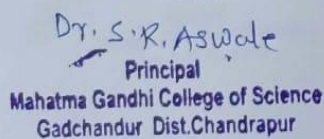 Dr. S.R. Aswale
Principal
Mahatma Gandhi College of Science
Gadchandur Dist.Chandrapur